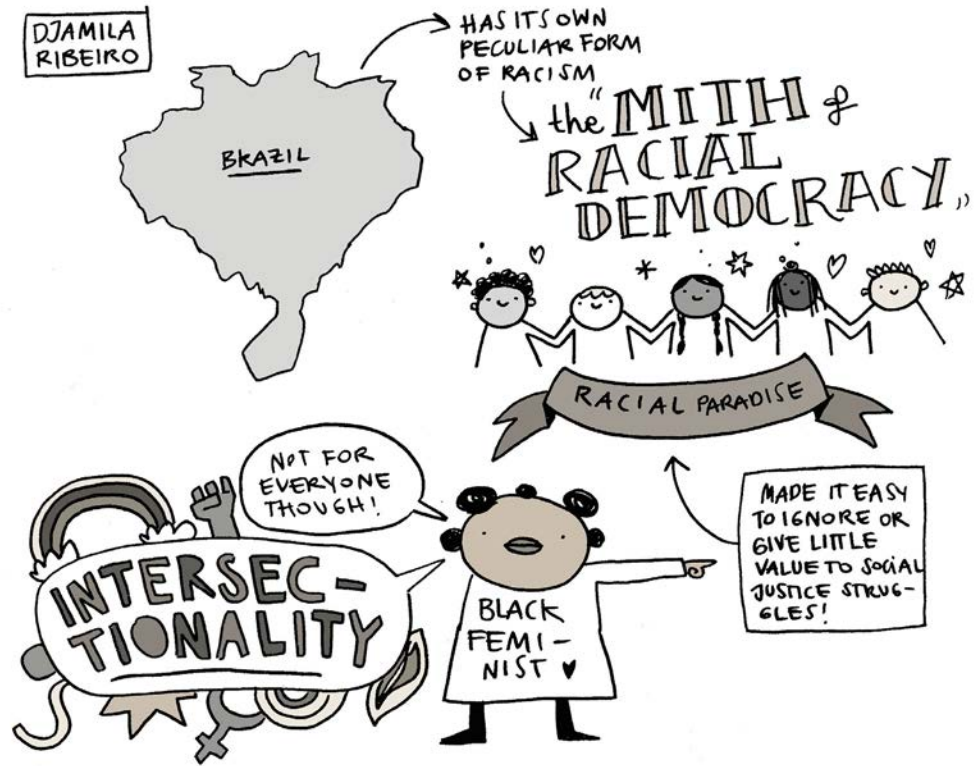 DJAMILA
RIBEIRO
BRAZIL
HAS ITS OWN
PECULIAR FORM
OF RACISM
the "MITH of
RACIAL
DEMOCRACY„
RACIAL PARADISE
MADE IT EASY
TO IGNORE OR
GIVE LITTLE
VALUE TO SOCIAL
JUSTICE STRUG-
GLES!
NOT FOR
EVERYONE
THOUGH!
INTERSEC-
TIONALITY
BLACK
FEMI-
NIST ♥